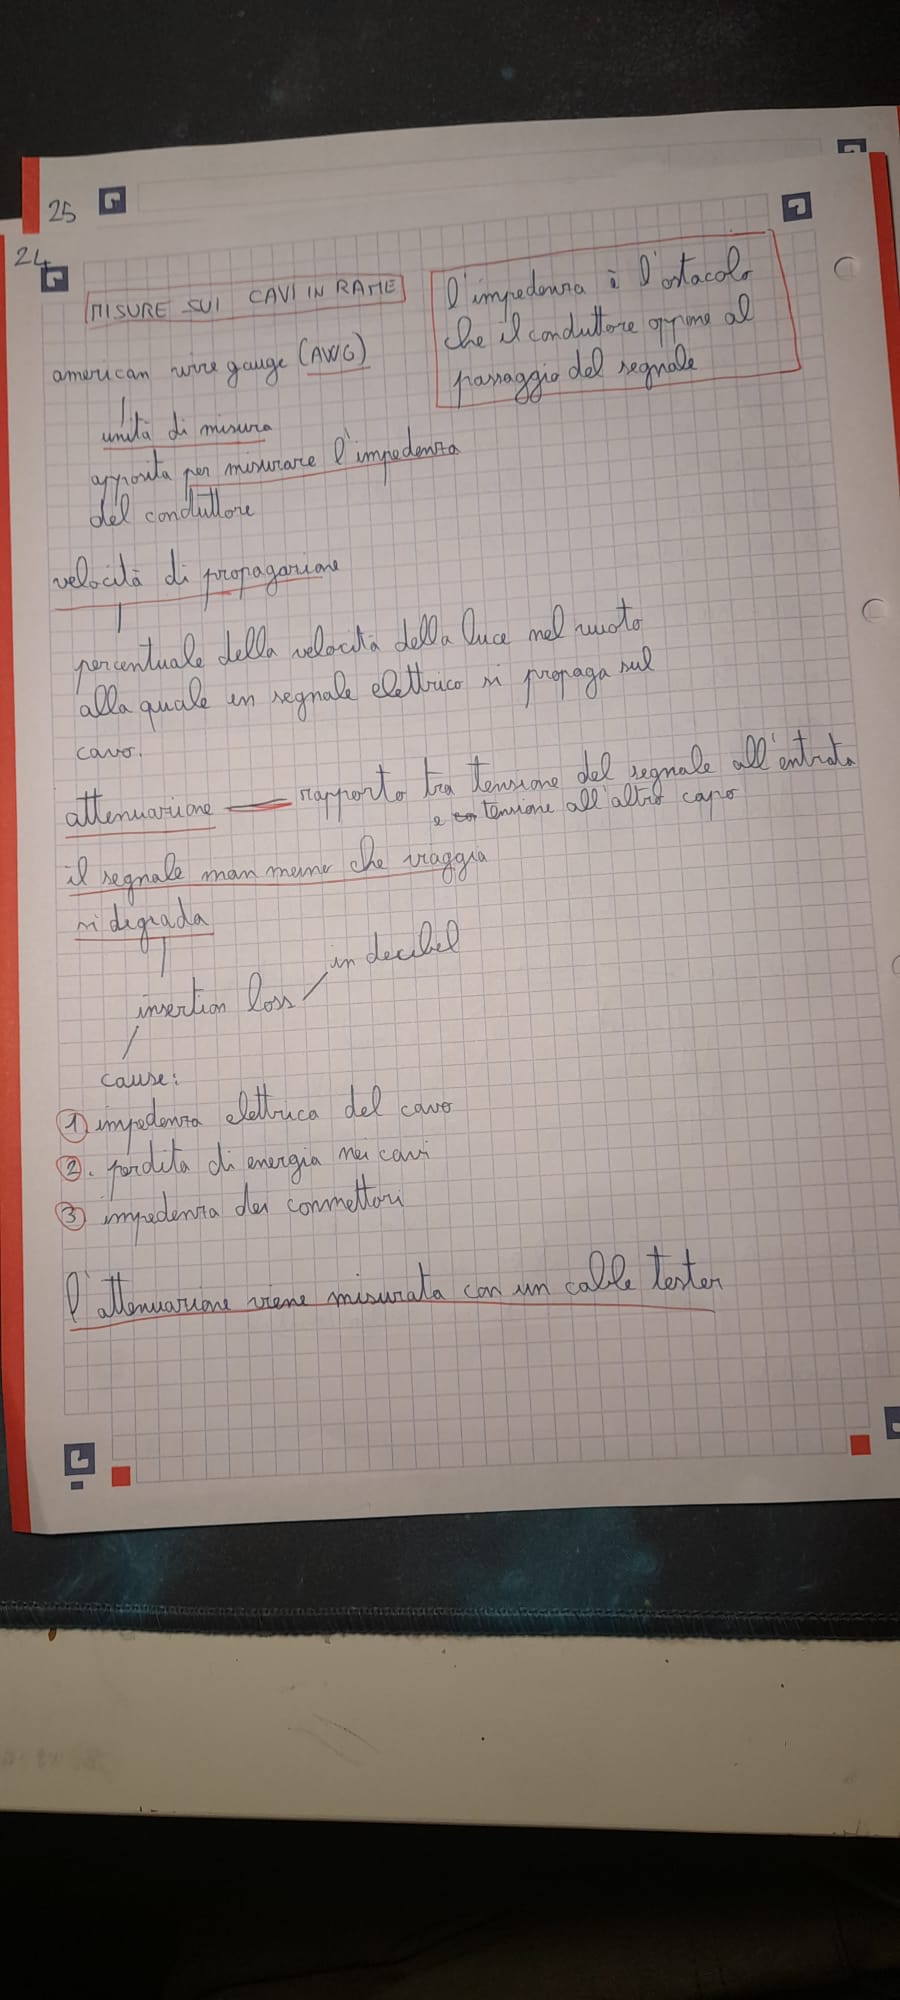 25
24
MISURE SUI CAVI IN RAME
l'impedenza è l'ostacolo
che il conduttore oppone al
passaggio del segnale
american wire gauge (AWG)
unità di misura
apposita per misurare l'impedenza
del conduttore
velocità di propagazione
percentuale della velocità della luce nel vuoto
alla quale un segnale elettrico si propaga sul
cavo.
attenuazione — rapporto tra tensione del segnale all'entrata
e tensione all'altro capo
il segnale man mano che viaggia
si degrada
in decibel
insertion loss
cause:
1 impedenza elettrica del cavo
2. perdita di energia nei cavi
3 impedenza dei connettori
l'attenuazione viene misurata con un cable tester